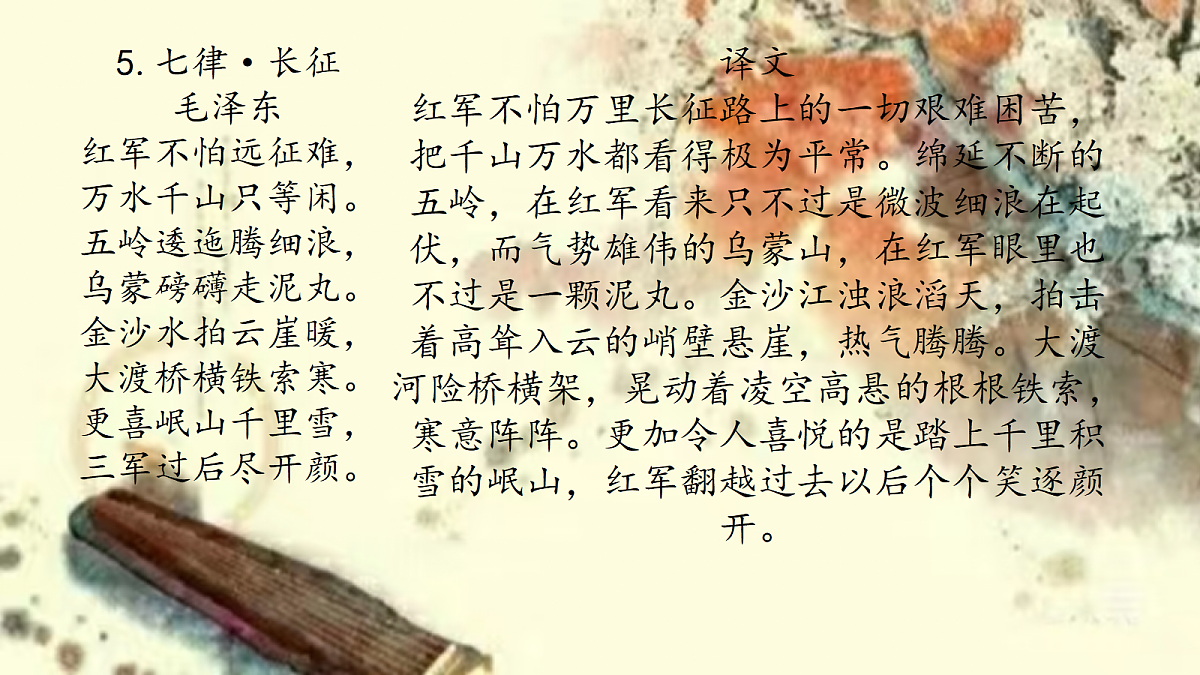 5. 七律·长征
毛泽东
红军不怕远征难，
万水千山只等闲。
五岭逶迤腾细浪，
乌蒙磅礴走泥丸。
金沙水拍云崖暖，
大渡桥横铁索寒。
更喜岷山千里雪，
三军过后尽开颜。
译文
红军不怕万里长征路上的一切艰难困苦，
把千山万水都看得极为平常。绵延不断的
五岭，在红军看来只不过是微波细浪在起
伏，而气势雄伟的乌蒙山，在红军眼里也
不过是一颗泥丸。金沙江浊浪滔天，拍击
着高耸入云的峭壁悬崖，热气腾腾。大渡
河险桥横架，晃动着凌空高悬的根根铁索，
寒意阵阵。更加令人喜悦的是踏上千里积
雪的岷山，红军翻越过去以后个个笑逐颜
开。